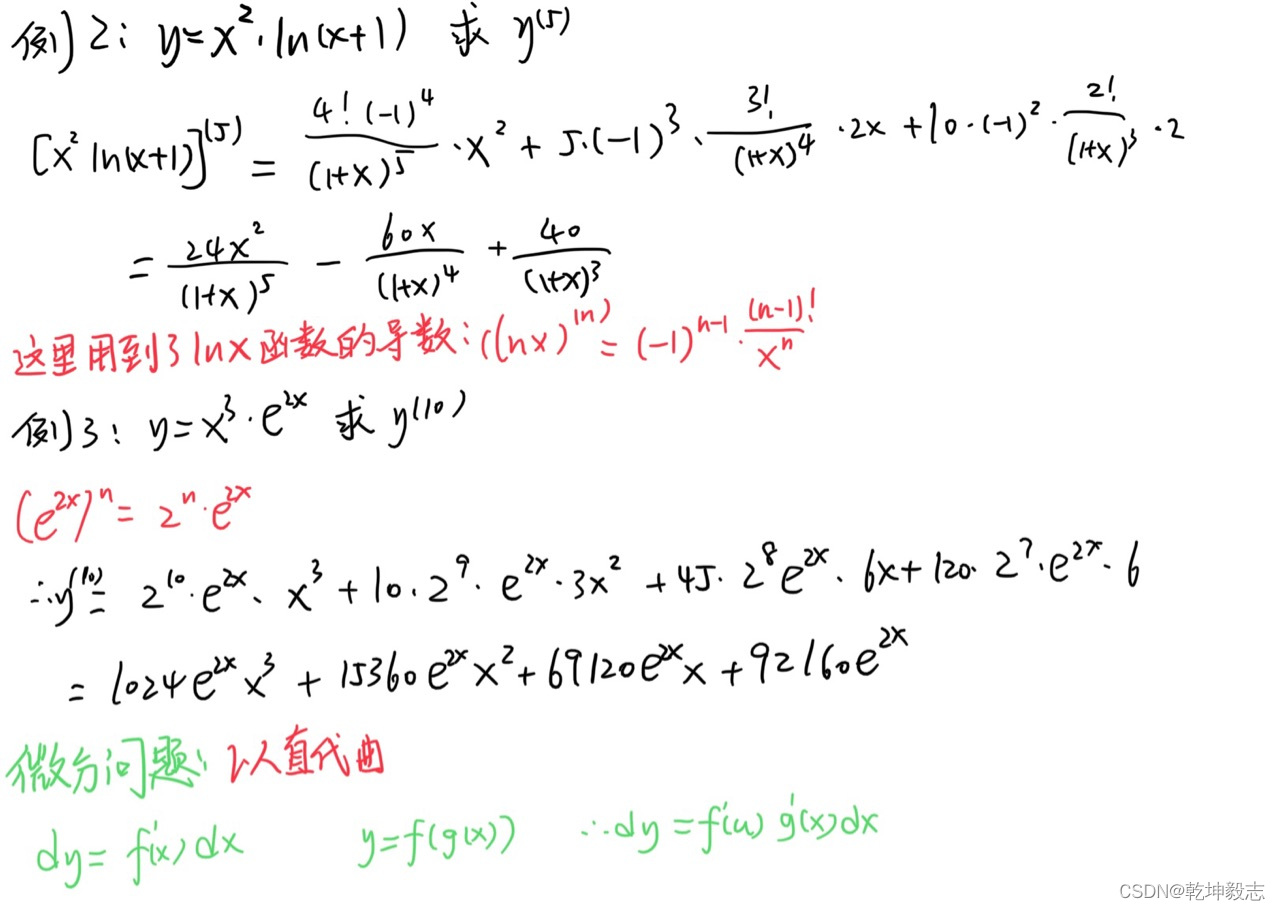 例2: y=x²·ln(x+1) 求 y⁽⁵⁾
[x² ln(x+1)]⁽⁵⁾ = \frac{4!(-1)^4}{(1+x)^5}·x² + 5·(-1)³·\frac{3!}{(1+x)^4}·2x + 10·(-1)²·\frac{2!}{(1+x)^3}·2
= \frac{24x²}{(1+x)^5} - \frac{60x}{(1+x)^4} + \frac{40}{(1+x)^3}
这里用到了lnx函数的导数: (lnx)^{(n)} = (-1)^{n-1}·\frac{(n-1)!}{x^n}
例3: y=x³·e^{2x} 求 y^{(10)}
(e^{2x})^n = 2^n·e^{2x}
∴y^{(10)} = 2^{10}·e^{2x}·x³ + 10·2^9·e^{2x}·3x² + 45·2^8 e^{2x}·6x + 120·2^7·e^{2x}·6
= 1024e^{2x}x³ + 15360e^{2x}x² + 69120e^{2x}x + 92160e^{2x}
微分问题: 以直代曲
dy = f'(x)dx y=f(g(x)) ∴dy = f'(u)g'(x)dx
CSDN@乾坤毅志